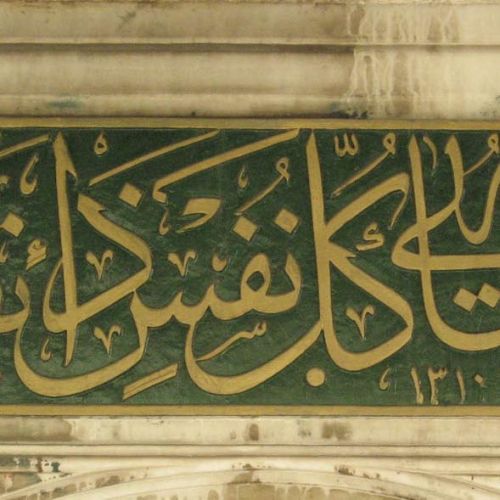 كُلُّ نَفْسٍ ذَائِ
١٣١٠